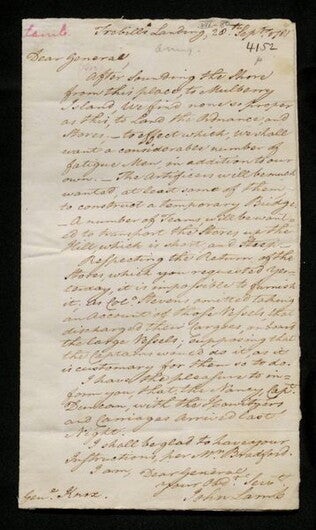 Lamb
Trebills Landing, 28th Sept. 1781
4152
Dear General,
After Sounding the Shore
from this place to Mulberry
Island We find none so proper
as this, to Land the Ordnance and
Stores, – to effect which, we shall
want a considerable number of
fatigue Men, in addition to our
own. – The Artificers will be much
wanted, at least some of them
to construct a temporary Bridge
– A number of Teams will be want-
ed to transport the Stores up the
Hill, which is short, and Steep –
Respecting the Return of the
Stores which you requested Yes-
terday, it is impossible to furnish
it. as Colo. Stevens omitted taking
an Account of those Vessels that
discharged their Cargoes, on board
the large Vessels, supposing that
the Captains would do it, as it
is customary for them so to do.
I have the pleasure to in-
form you that the Nancy Capt.
Duncan, with the Howitzers
and Carriages Arrived last
Night.
I shall be glad to have your
Instructions, per Mr. Bradford.
I am, Dear General
Your Obdt. Servt.
John Lamb
Genl. Knox